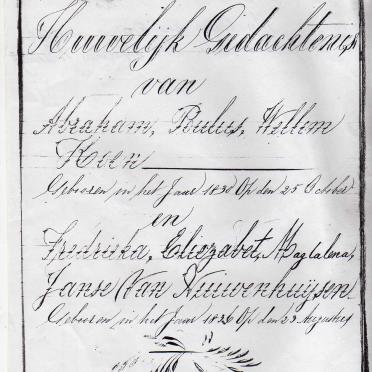 Huwelijk Gedachtenis
van
Abraham, Paulus, Willem
Koen
Gebooren in het Jaar 1830 Op den 25 October
en
Fredrieka, Eliezabet, Magdalena,
Janse Van Niuwenhuijsen
Gebooren in het Jaar 1836 Op den 23 Augustus